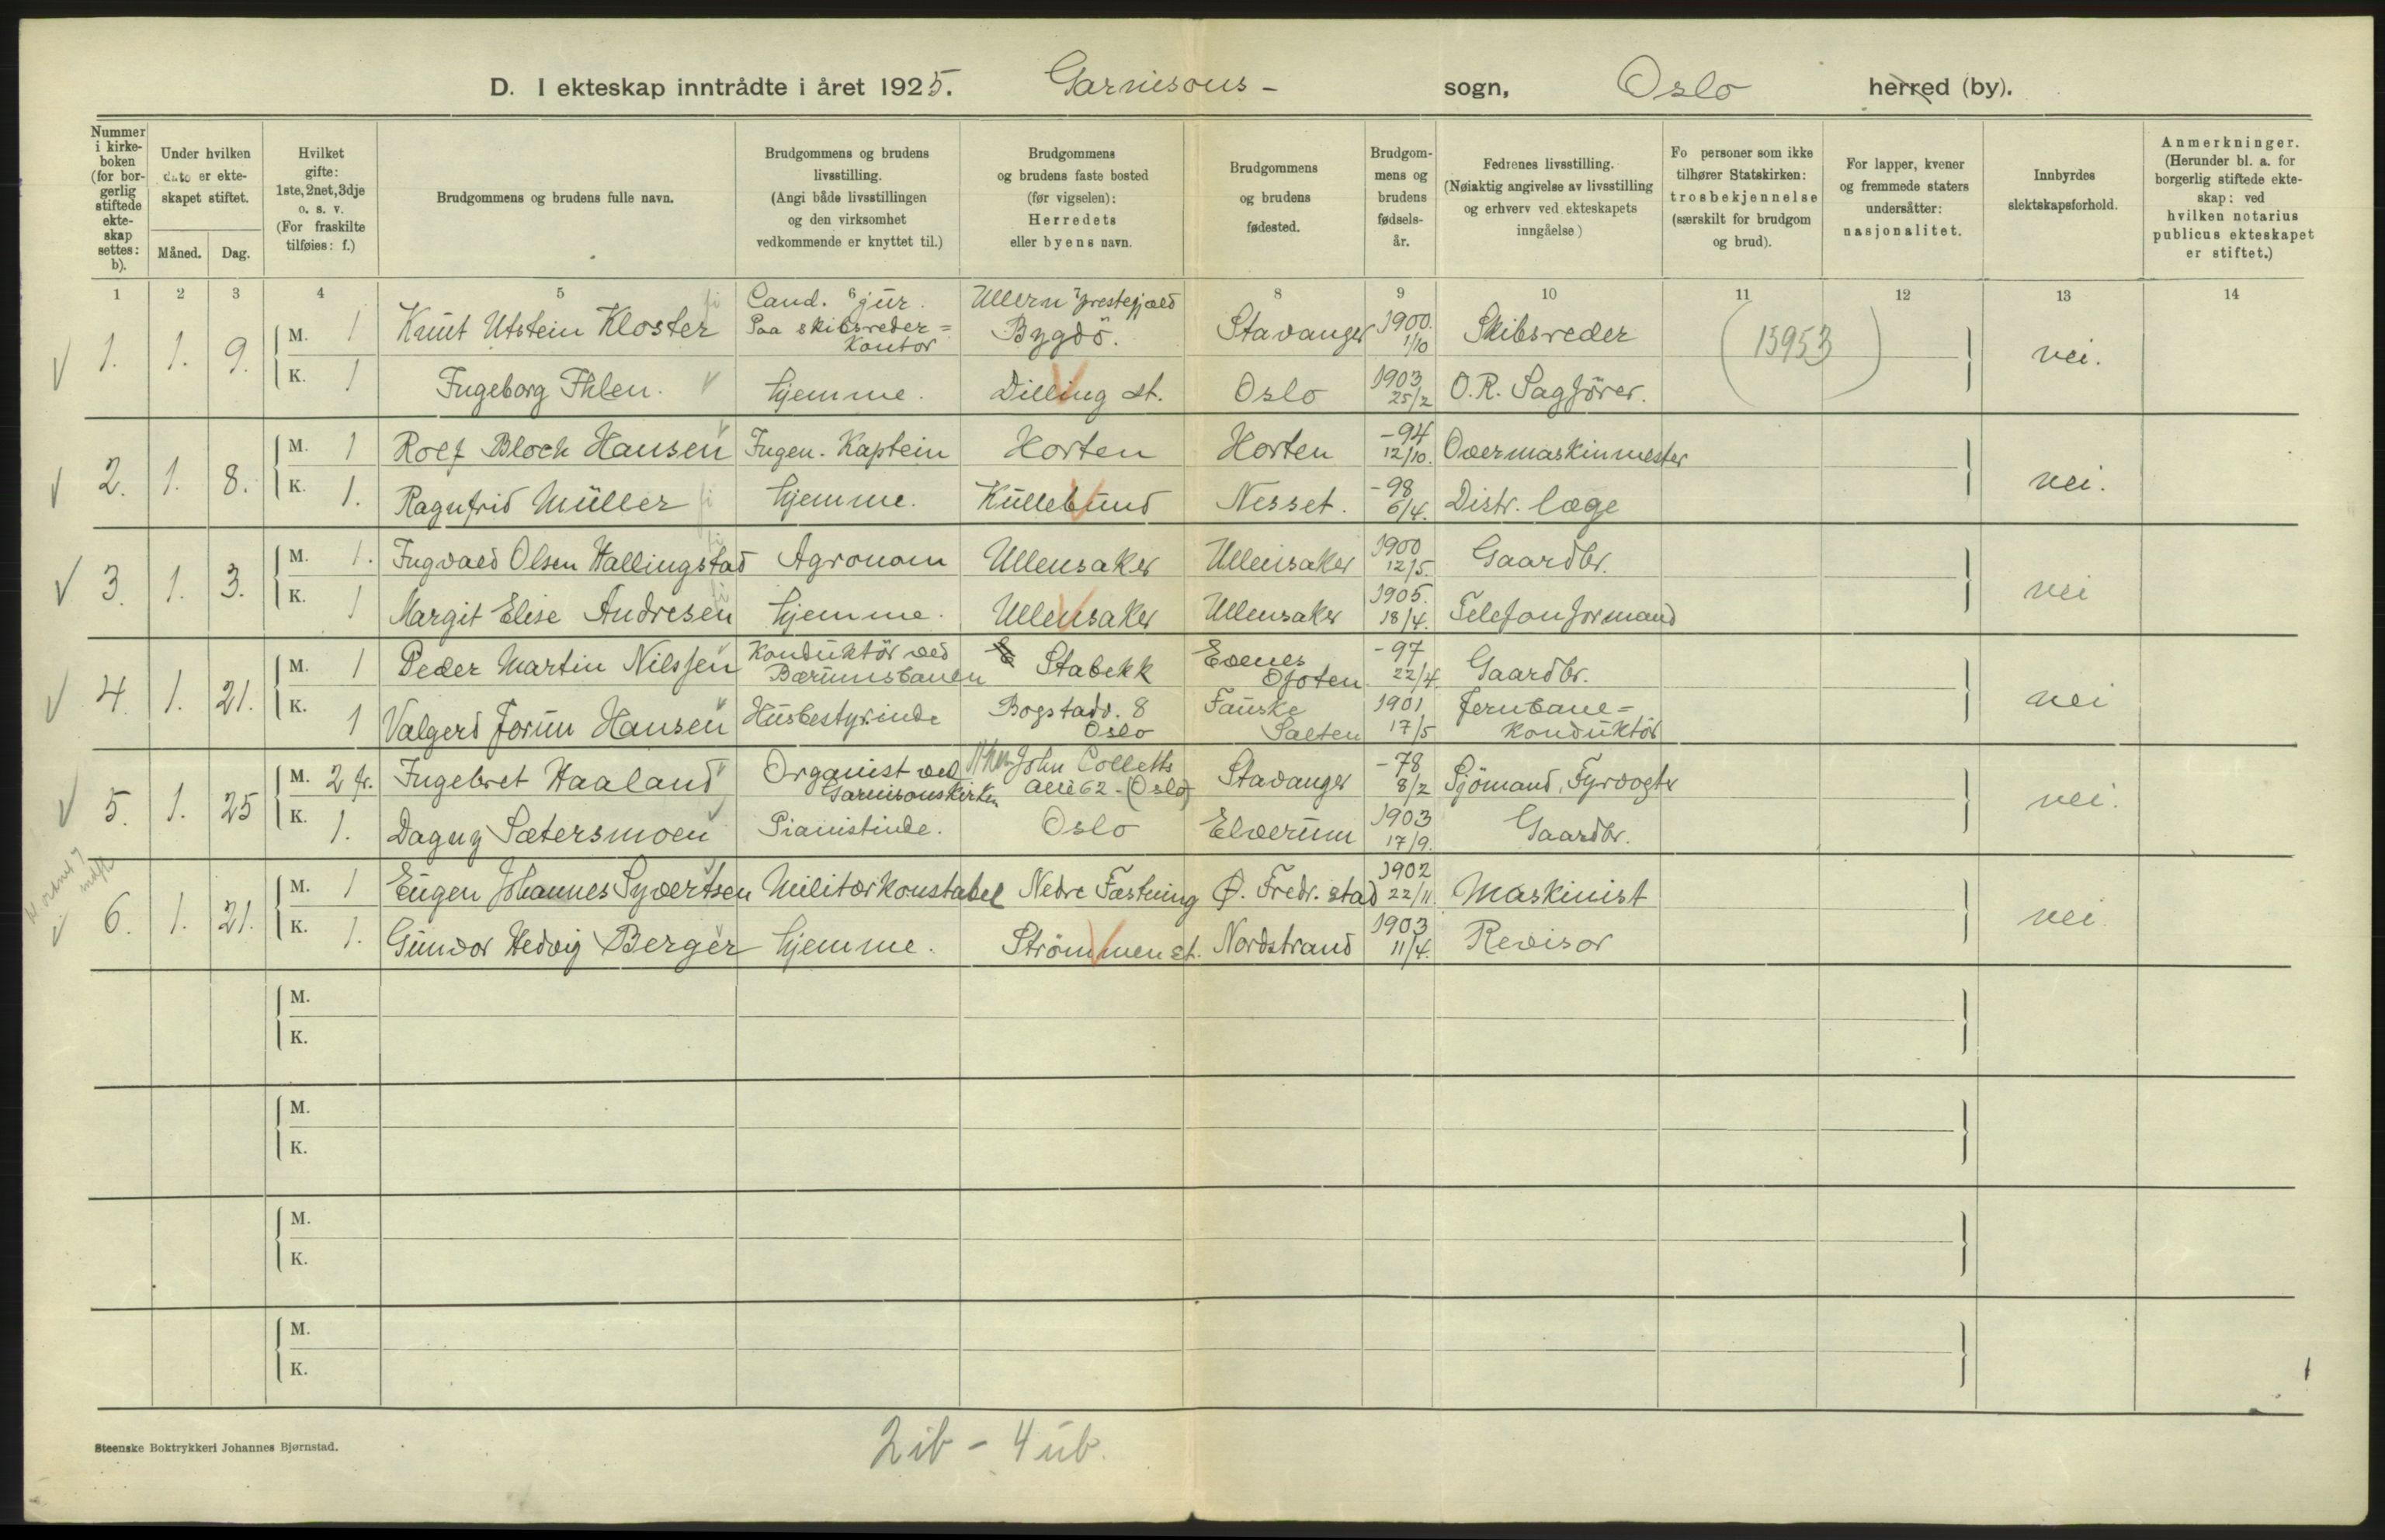 D. I ekteskap inntrådte i året 1925. Garnisons- sogn, Oslo herred (by).
Nummer i kirkeboken (for borgerlig stiftede ekteskap settes: b).
Under hvilken dato er ekteskapet stiftet.
Måned. Dag.
Hvilket gifte: 1ste, 2net, 3dje o. s. v. (For fraskilte tilføies: f.)
Brudgommens og brudens fulle navn.
Brudgommens og brudens livsstilling. (Angi både livsstillingen og den virksomhet vedkommende er knyttet til.)
Brudgommens og brudens faste bosted (før vigselen): Herredets eller byens navn.
Brudgommens og brudens fødested.
Brudgommens og brudens fødselsår.
Fedrenes livsstilling. (Nøiaktig angivelse av livsstilling og erhverv ved ekteskapets inngåelse)
Fo personer som ikke tilhører Statskirken: trosbekjennelse (særskilt for brudgom og brud).
For lapper, kvener og fremmede staters undersåtter: nasjonalitet.
Innbyrdes slektskapsforhold.
Anmerkninger. (Herunder bl. a. for borgerlig stiftede ekteskap: ved hvilken notarius publicus ekteskapet er stiftet.)
1 2 3 4 5 6 7 8 9 10 11 12 13 14
1. 1. 9. M. 1 Knut Utstein Kloster Cand. jur. Paa skibsreder= kontor Ullern prestegjæld Bygdö. Stavanger 1900. 1/10 Skibsreder (15953) nei.
K. 1 Ingeborg Ihlen. hjemme. Dilling st. Oslo 1903 25/2 O.R. Sagförer.
2. 1. 8. M. 1 Rolf Bloch Hansen Ingen. Kaptein Horten Horten -94 12/10. Overmaskinmester nei.
K. 1. Ragnfrid Müller hjemme. Kullebund Nesset. -98 6/4. Distr. læge
3. 1. 3. M. 1. Ingvald Olsen Hallingstad Agronom Ullensaker Ullensaker 1900 12/5. Gaardbr. nei
K. 1 Margit Elise Andresen hjemme. Ullensaker Ullensaker 1905. 18/4. Telefonformand
4. 1. 21. M. 1 Peder Martin Nilssen Konduktör ved Bærumsbanen Stabekk Evenes Ofoten -97 22/4. Gaardbr. nei
K. 1 Valgerd Jorun Hansen Husbestyrinde Bogstadv. 8 Oslo Fauske Salten 1901 17/5 Jernbane= konduktör
5. 1. 25 M. 2 fr. Ingebret Haaland Organist ved Garnisonskirken John Colletts Allé 62 - (Oslo) Stavanger -78 8/2 Sjömand, Fyrvogter nei.
K. 1. Dagny Sætersmoen Pianistinde. Oslo Elverum 1903 17/9. Gaardbr.
6. 1. 21. M. 1 Eugen Johannes Syvertsen Militærkonstabel Nedre Fæstning Ø. Fredr.stad 1902 22/11. Maskinist nei.
K. 1. Gunvor Hedvig Berger hjemme. Strömmen st. Nordstrand 1903 11/4. Revisor
M.
K.
M.
K.
M.
K.
M.
K.
Steenske Boktrykkeri Johannes Bjørnstad.
2 ib - 4 ub.